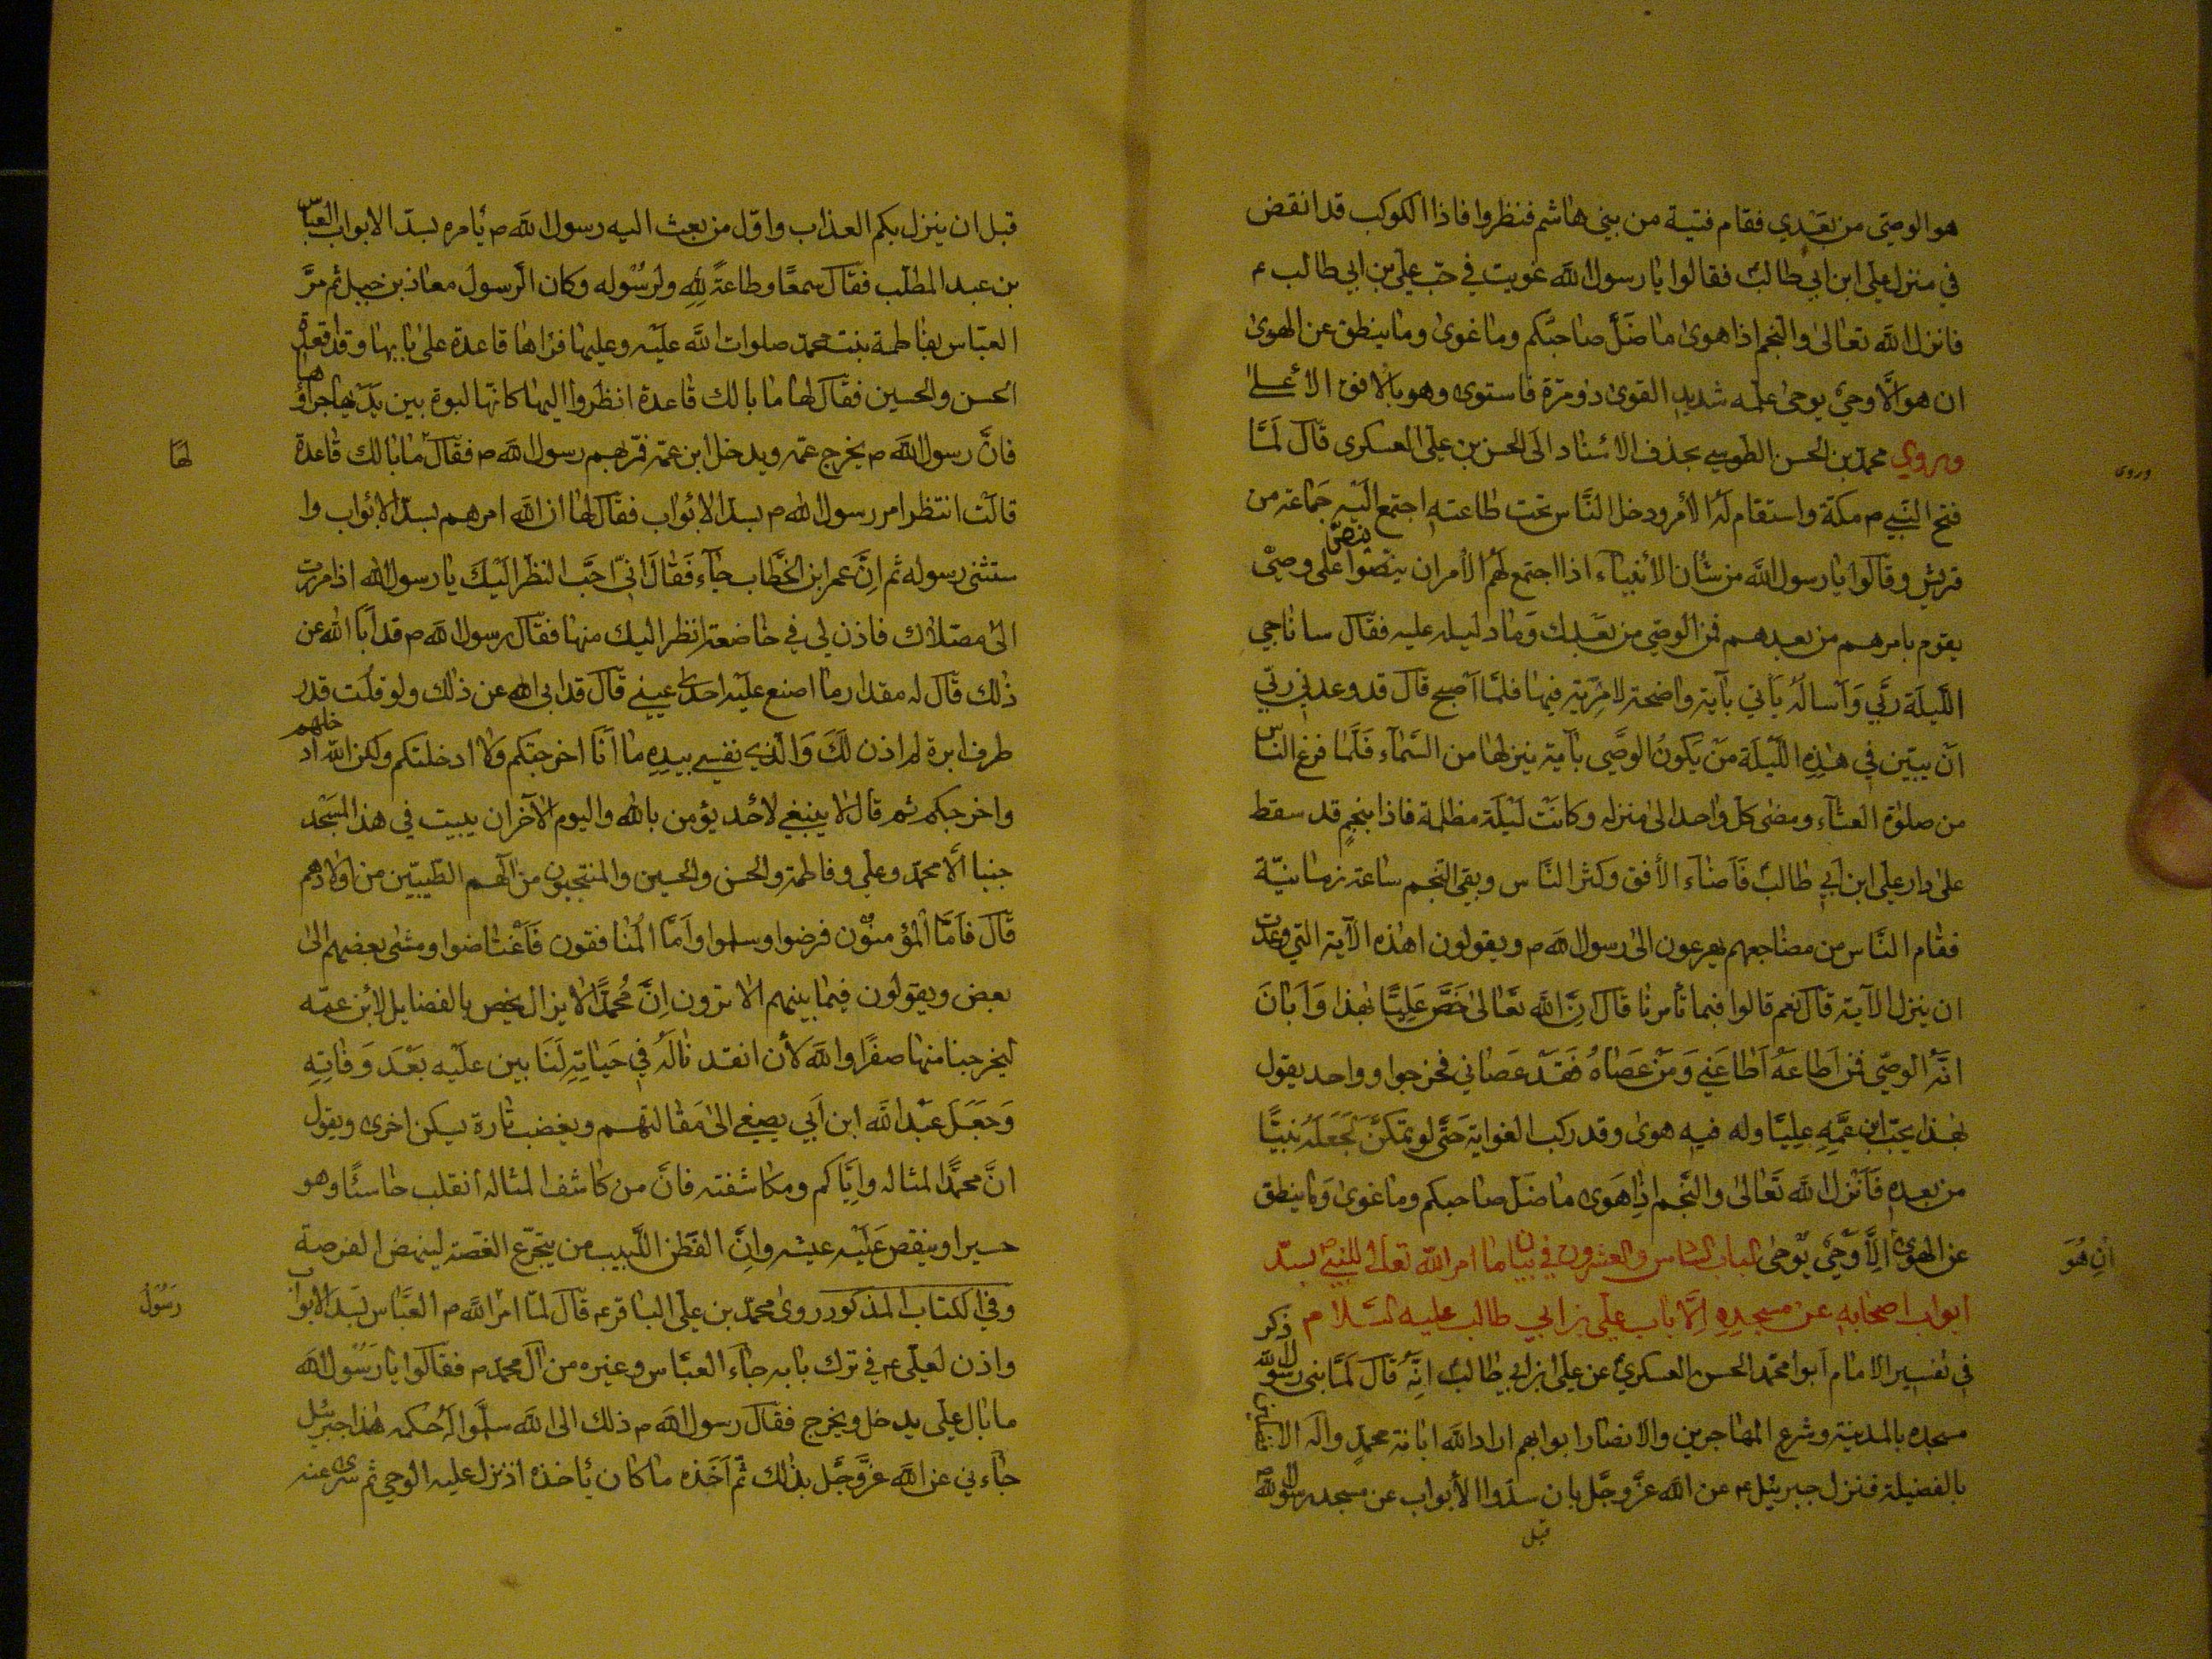 هو الوصيّ من بعدي فقام فتية من بني هاشم فنظروا فاذا الكوكب قد انقض
في منزل علي ابن ابي طالب فقالوا يا رسول الله غويت في حب علي بن ابي طالب ع
فانزل الله تعالى والنجم اذا هوى ما ضلّ صاحبكم وما غوى وما ينطق عن الهوى
ان هو الّا وحيٌ يوحى علمه شديد القوى ذو مرّة فاستوى وهو بالافق الأعلى
وروي محمد بن الحسن الطوسي بحذف الاسناد الى الحسن بن علي العسكري قال لمّا
وروى
فتح النّبي م مكة واستقام له الأمر ودخل النّاس تحت طاعته اجتمع اليه جماعة من
قريش وقالوا يا رسول الله من شأن الأنبياء اذا اجتمع لهم الأمر ان ينصّوا على وصيّ
ينصّ
يقوم بامرهم من بعدهم فمن الوصي من بعدك وما دليله عليه فقال ساناجي
اللّيلة ربّي وأسأله يأتي بآية واضحة لا مرية فيها فلمّا أصبح قال قد وعدني ربّي
ان يبيّن في هذه اللّيلة من يكون الوصّي بآية ينزلها من السّماء فلمّا فرغ النّاس
من صلوة العشاء ومضى كل واحد الى منزله وكانت ليلة مظلمة فاذا بنجم قد سقط
على دار علي ابن ابي طالب فأضاء الأفق وكثر النّاس وبقي النّجم ساعة زمانيّة
فقام النّاس من مضاجعهم يهرعون الى رسول الله م ويقولون اهذه الآية التي وعدت
ان ينزل الآية قال نعم قالوا فبما تأمرنا قال انّ الله تعالى خصّ عليًّا بهذا وأبان
انّه الوصّي فمن اطاعه أطاعني ومن عصاه فقد عصاني فخرجوا وواحد يقول
بهذا يحبّ ابن عمّه عليًّا وله فيه هوى وقد ركب الغواية حتّى لو تمكّن لجعله نبيًّا
من بعده فأنزل الله تعالى والنّجم اذا هوى ما ضلّ صاحبكم وما غوى وما ينطق
عن الهوى الّا وحيٌ يوحى الباب الخامس والعشرون في بيان ما امر الله تعالى للنبي ص بسدّ
ان هُوَ
ابواب اصحابه عن مسجده الّا باب علي بن ابي طالب عليه السّلام ذكر
في تفسير الامام ابو محمّد الحسن العسكري عن علي ابن ابي طالب انّه قال لمّا بنى رسول الله
مسجده بالمدينة وشرع المهاجرين والانصار ابوابهم اراد الله ابانة محمدٍ وآله
بالفضيلة فنزل جبرئيل ع عن الله عزّ وجّل بان سدّوا الأبواب عن مسجد رسول الله
قبل
قبل ان ينزل بكم العذاب واوّل من بعث اليه رسول الله م يأمره بسدّ الابواب العبّاس
بن عبد المطلب فقال سمعًا وطاعةً للهِ ولرسُوله وكان الرّسول معاذ بن جبل ثم مرّ
العبّاس بفاطمة بنت محمد صلوات الله عليه وعليها فرآها قاعدة على بابها وقد اقعدت
الحسن والحسين فقال لها ما بالك قاعدة انظروا اليها كانها لبوة بين يديها جراؤها
فانّ رسول الله م يخرج عمّه ويدخل ابن عمّه فمرّ بهم رسول الله م فقال ما بالك قاعدة
لها
قالت انتظر امر رسول الله م بسدّ الابواب فقال لها ان الله امرهم بسدّ الابواب وا
ستثنى رسوله ثم انّ عمر ابن الخطّاب جاء فقال انّي احبّ النظر اليك يا رسول الله اذا مررت
الى مصلاك فاذن لي في خاضعة انظر اليك منها فقال رسول الله م قد أبا الله عن
ذلك قال له مقدار ما اصنع عليه احدى عيني قال قد ابى الله عن ذلك ولو قلت قدر
طرف ابرة لم اذن لك والّذي نفسي بيده ما انا اخرجتكم ولا ادخلتكم ولكن الله اد
خلهم
واخرجكم ثم قال لا ينبغي لاحد يؤمن بالله واليوم الآخر ان يبيت في هذا المسجد
جنبا الّا محمّد وعلي وفاطمة والحسن والحسين والمنتجبون من آلهم الطّيبيّن من اولادهم
قال فامّا المؤمنون فرضوا وسلموا وامّا المنافقون فاغتاضوا ومشى بعضهم الى
بعض ويقولون فيما بينهم الا ترون انّ محمّدًا لا يزال يخص بالفضايل لابن عمّه
ليخرجنا منها صفرًا والله لأن انقد ناله في حياته لنا بين عليه بعد وفاته
وجعل عبد الله ابن أبي يصغي الى مقالتهم ويغضب تارة يسكن اخرى ويقول
انّ محمدًّا لمتاله وايّاكم ومكاشفته فانّ من كاشف المتاله انقلب خاسئًا وهو
حسيرا وينقص عليه عيشه وانّ الفطن اللّبيب من يتجرّع الغصّة لينهض الفرصة
وفي الكتاب المذكور روى محمّد بن علي الباقر ع قال لمّا امر الله م العبّاس بسدّ الابواب
رسُولُ
واذن لعلي ع في ترك بابه جاء العبّاس وغيره من آل محمد م فقالوا يا رسول الله
ما بال علي يدخل ويخرج فقال رسول الله م ذلك الى الله سلّموا له حكمه هذا جبرئيل
جاءني عن الله عزّ وجّل بذلك ثمّ اخذه ما كان يأخذه اذ نزل عليه الوحي ثم سرى عنه